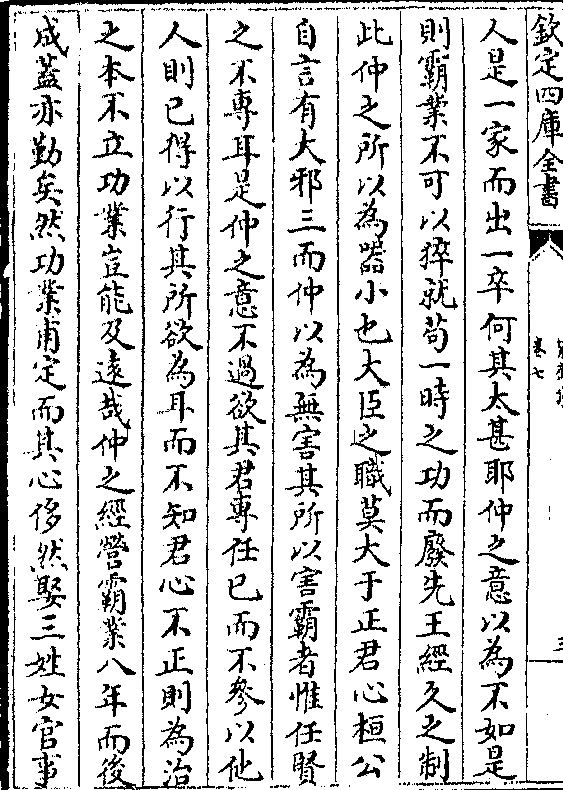 欽定四庫全書
卷七
人是一家而出一卒何其太甚耶仲之意以為不如是
則霸業不可以猝就苟一時之功而廢先王經久之制
此仲之所以為器小也大臣之職莫大于正君心桓公
自言有大邪三而仲以為無害其所以害霸者惟任賢
之不專耳是仲之意不過欲其君專任已而不參以他
人則已得以行其所欲為耳而不知君心不正則為治
之本不立功業豈能及遠哉仲之經營霸業八年而後
成蓋亦勤矣然功業甫定而其心侈然娶三姓女官事